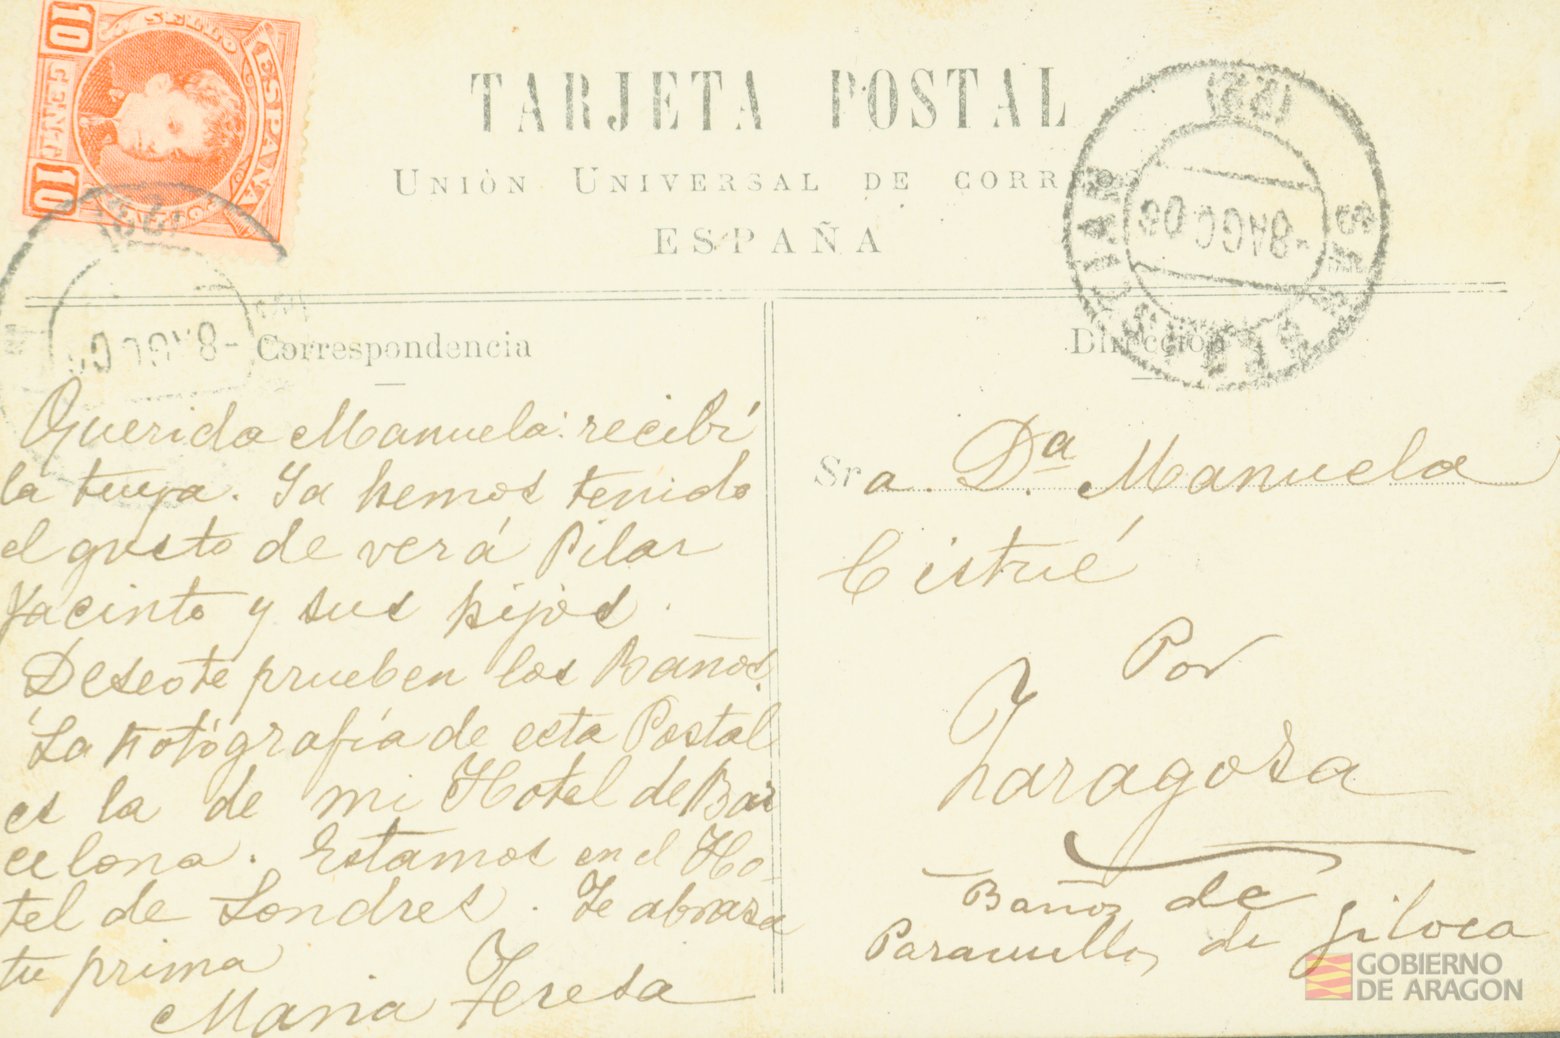 10
SELLO
ESPAÑA
10
TARJETA POSTAL
UNIÓN UNIVERSAL DE CORREOS
ESPAÑA
(22)
-8 AGO 06
SAN SEBASTIAN
-8 AGO 06
Correspondencia
Dirección
Querida Manuela: recibí
la tuya. Ya hemos tenido
el gusto de ver á Pilar
Jacinto y sus hijos.
Deseo te prueben los Baños.
La Fotógrafía de esta Postal
es la de mi Hotel de Bar
celona. Estamos en el Ho-
tel de Londres. Te abraza
tu prima
Maria Teresa
Sra. Dª. Manuela
Cistué
Por
Zaragoza
Baños de
Paracuellos de Giloca
GOBIERNO
DE ARAGON